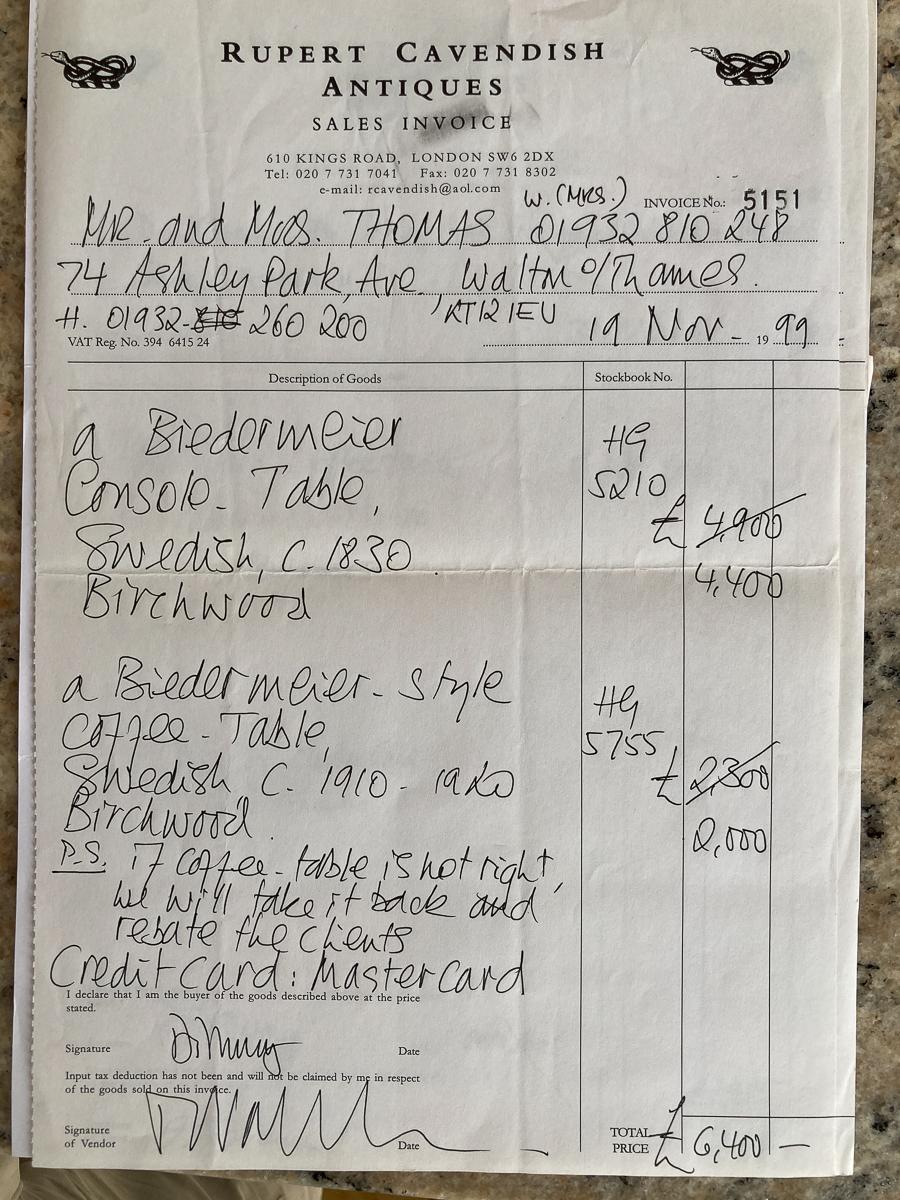 RUPERT CAVENDISH
ANTIQUES
SALES INVOICE
610 KINGS ROAD, LONDON SW6 2DX
Tel: 020 7 731 7041 Fax: 020 7 731 8302
e-mail: rcavendish@aol.com
W. (MRS.) INVOICE No.: 5151
MR. and Mrs. THOMAS 01932 810 248
74 Ashley Park Ave, Walton o/Thames.
H. 01932-810 260 200 KT12 1EU
19 Nov - 19 99
VAT Reg. No. 394 6415 24
Description of Goods Stockbook No.
a Biedermeier HG
Console-Table, 5210
£ 4,900
Swedish, C. 1830
4,400
Birchwood
a Biedermeier-style HG
Coffee-Table, 5755
Swedish, C. 1910-1920 £ 2,300
Birchwood. 2,000
P.S. if coffee-table is not right,
we will take it back and
rebate the clients
Credit Card: MasterCard
I declare that I am the buyer of the goods described above at the price
stated.
Signature Date
Input tax deduction has not been and will not be claimed by me in respect
of the goods sold on this invoice.
Signature
of Vendor Date
TOTAL
PRICE £ 6,400 —